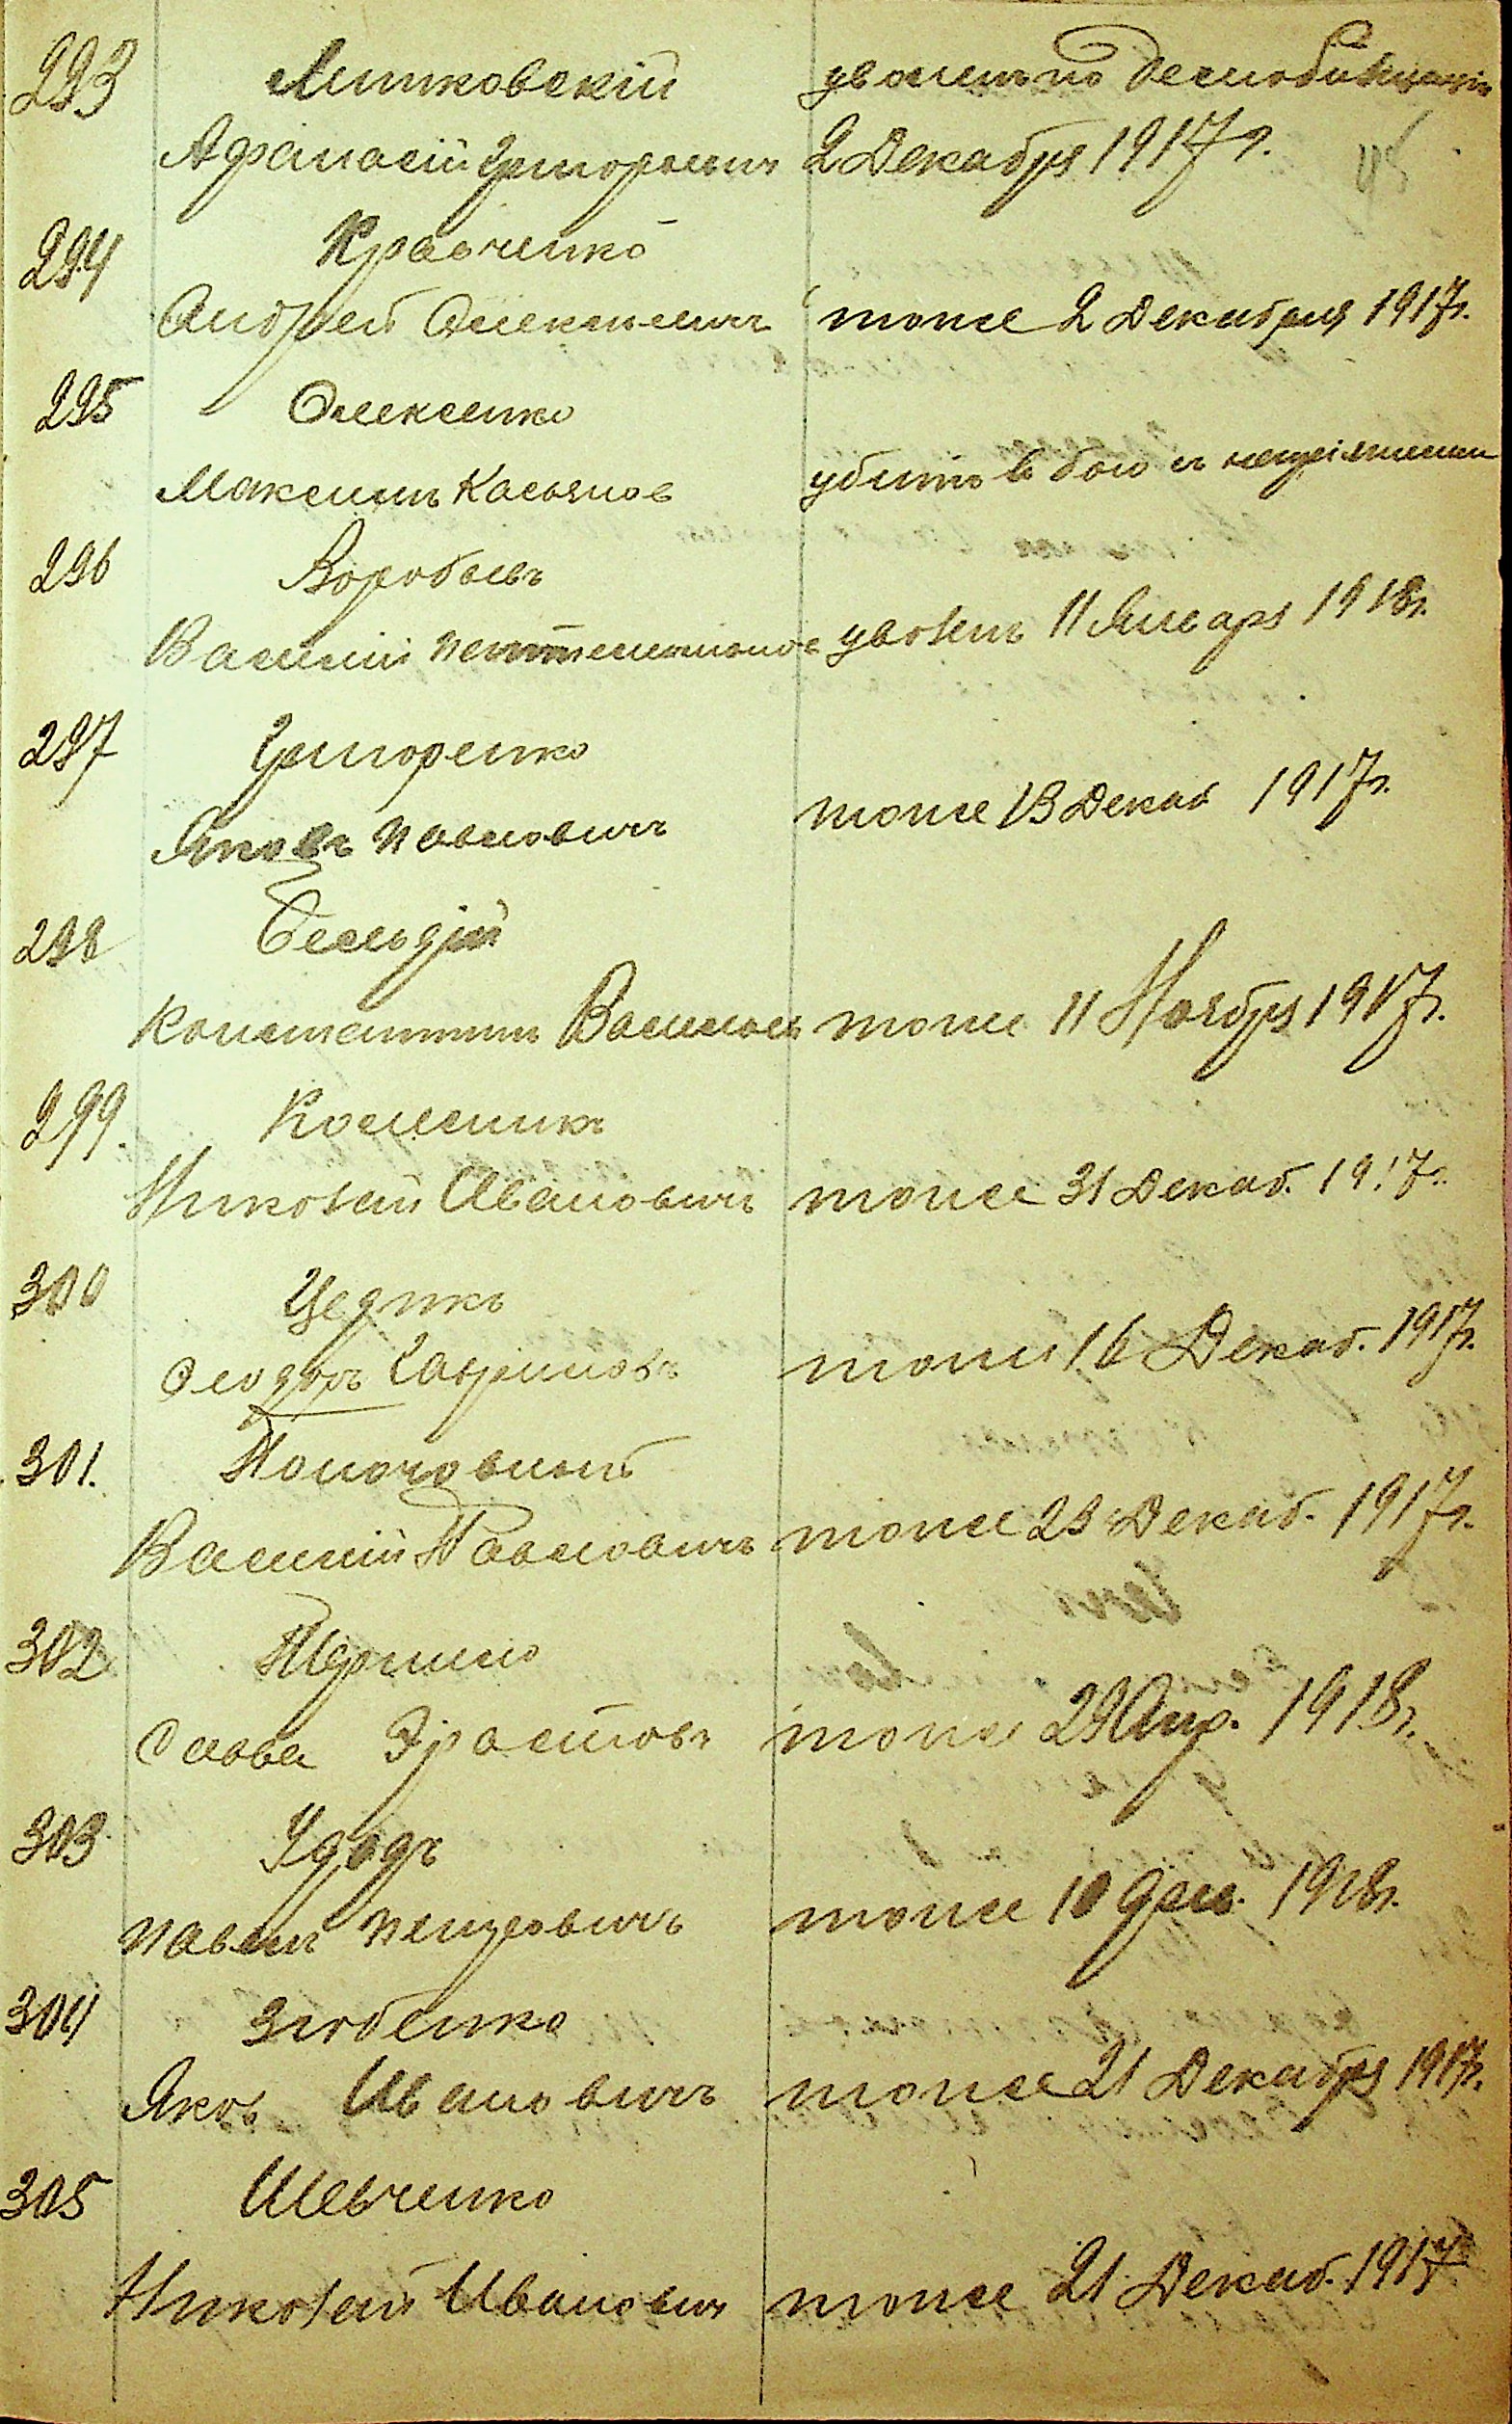 293 Литковскій уволенъ по демобилизаціи
Афанасій Григорьевич 2 Декабря 1917 г.
294 Кравченко
Андрей Алексеевичъ тоже 2 Декабря 1917г.
295 Олексенко
Максимъ Касьянов убитъ в бою съ непріятелем
296 Воробьевъ
Василій уволен 11 Январ 1918г.
297 Григоренко
Яковъ Павловичъ тоже 13 Декаб 1917г.
298
Константинъ Васильев тоже 11 Ноябр 1917г.
299. Колесникъ
Николай Ивановичъ тоже 31 Декаб. 1917г.
300 Цедикъ
Феодоръ Гавриловъ тоже 16 Декаб. 1917г.
301.
Василій Павловичъ тоже 23 Декаб. 1917г.
302
Савва Эрастовъ тоже 29 Апр. 1918г.
303 Удодъ
Павелъ тоже 10 1918г.
304 Злобенко
Яковъ Ивановичъ тоже 21 Декабря 1917г.
305 Шевченко
Николай Иванович тоже 21 Декаб. 1917